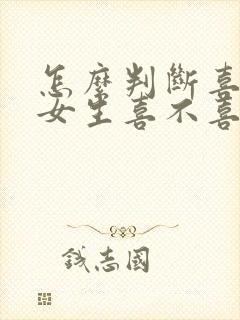 怎麼判斷喜
女生喜不喜
錢志國